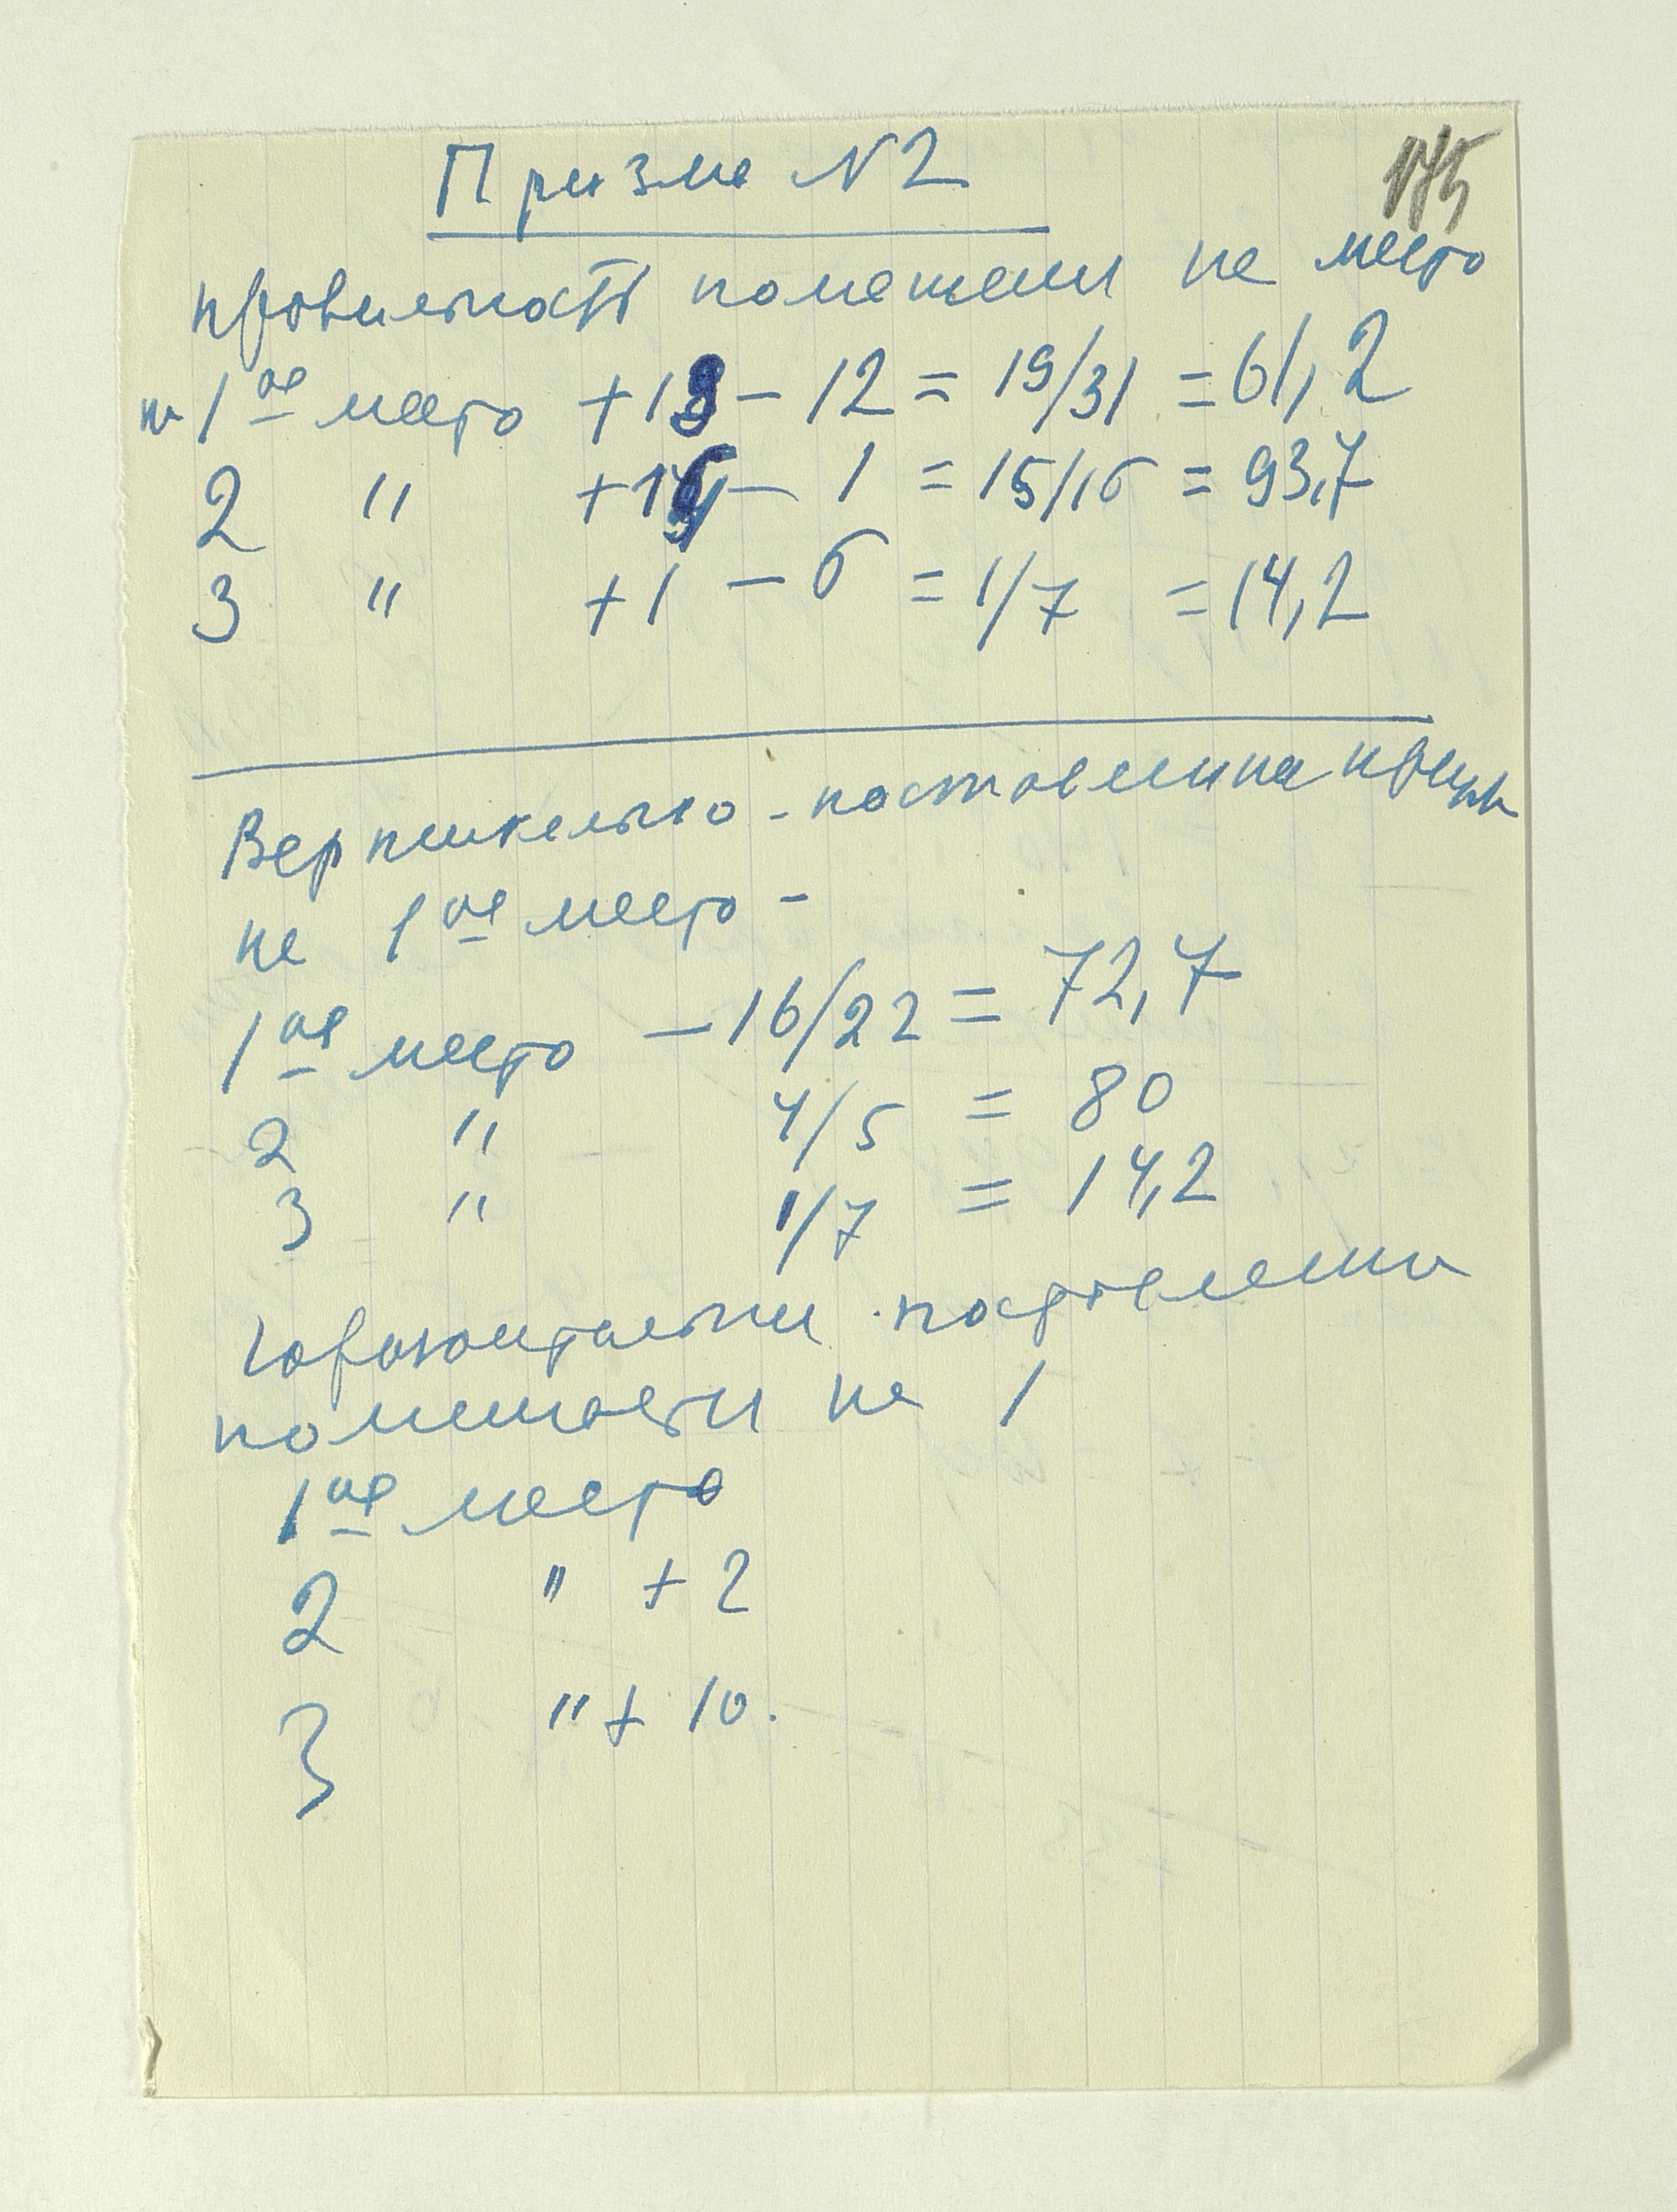 Призма N2
175
правильность помещения на место
на 1ое место +19 – 12 = 19/31 = 61,2
2 " +15 – 1 = 15/16 = 93,7
3 " +1 – 6 = 1/7 = 14,2
Вертикально - поставлена
на 1ое место –
1ое место – 16/22 = 72,7
2 " 4/5 = 80
3 " 1/7 = 14,2
Горизонтальн поставлена
на 1
1ое место
2 " + 2
3 " + 10.